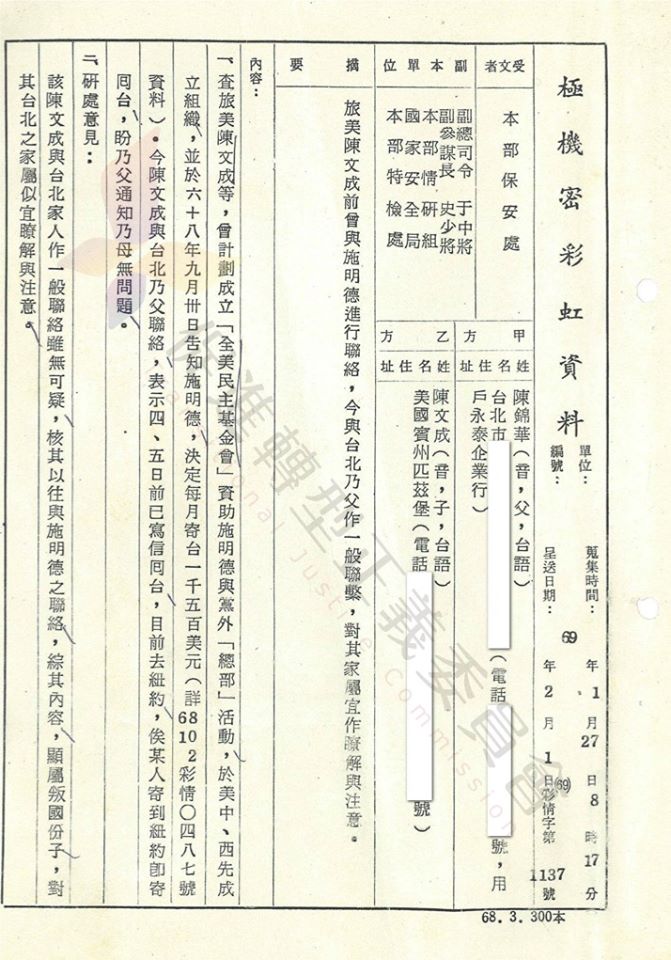 極機密彩虹資料
單位：
編號：
蒐集時間：69年1月27日8時17分
呈送日期：69年2月1日(69)彩情字第1137號
受文者
本部保安處
副本單位
副總司令 于中將
副參謀長 史少將
本部情研組
國家安全局
本部特檢處
甲方
姓名住址
陳錦華（音，父，台語）
台北市（電話號，用
戶永泰企業行）
乙方
姓名住址
陳文成（音，子，台語）
美國賓州匹茲堡（電話號）
摘要
旅美陳文成前曾與施明德進行聯絡，今與台北乃父作一般聯繫，對其家屬宜作瞭解與注意。
內容：
一、查旅美陳文成等，曾計劃成立「全美民主基金會」資助施明德與黨外「總部」活動，於美中、西先成
立組織，並於六十八年九月卅日告知施明德，決定每月寄台一千五百美元（詳68102彩情〇四八七號
資料）。今陳文成與台北乃父聯絡，表示四、五日前已寫信囘台，目前去紐約，俟某人寄到紐約卽寄
囘台，盼乃父通知乃母無問題。
二、研處意見：
該陳文成與台北家人作一般聯絡雖無可疑，核其以往與施明德之聯絡，綜其內容，顯屬叛國份子，對
其台北之家屬似宜瞭解與注意。
68.3.300本
促進轉型正義委員會
Transitional Justice Commission